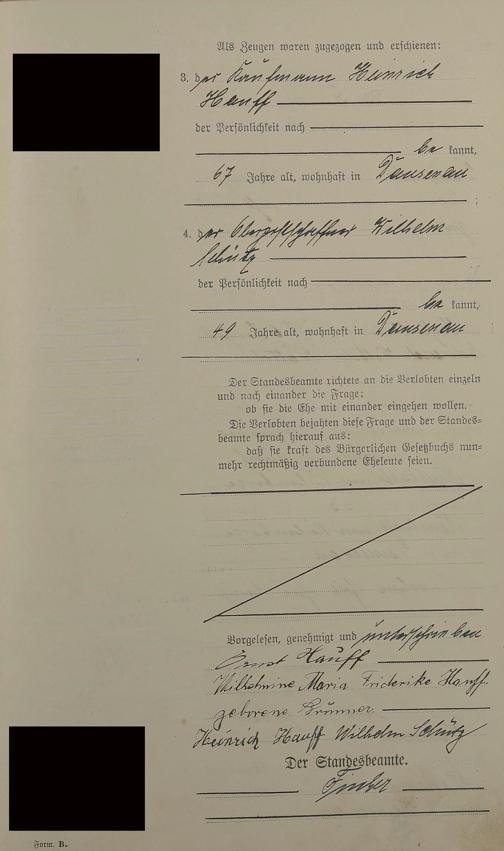 Als Zeugen waren zugezogen und erschienen:
3. der Kaufmann Heinrich
Hauff
der Persönlichkeit nach
be kannt,
67 Jahre alt, wohnhaft in Dausenau
4. der Oberpostschaffner Wilhelm
Schütz
der Persönlichkeit nach
be kannt,
49 Jahre alt, wohnhaft in Dausenau
Der Standesbeamte richtete an die Verlobten einzeln
und nach einander die Frage:
ob sie die Ehe mit einander eingehen wollen.
Die Verlobten bejahten diese Frage und der Standes=
beamte sprach hierauf aus:
daß sie kraft des Bürgerlichen Gesetzbuchs nun=
mehr rechtmäßig verbundene Eheleute seien.
Vorgelesen, genehmigt und unterschrieben
Ernst Hauff
Wilhelmine Maria Friderike Hauff
geborene Brunner
Heinrich Hauff Wilhelm Schütz
Der Standesbeamte.
Form. B.